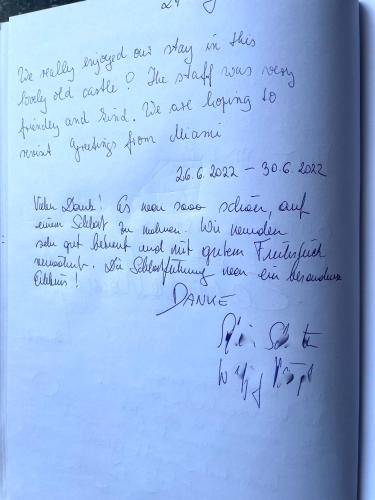 We really enjoyed our stay in this
lovely old castle! The staff was very
friendly and kind. We are hoping to
revisit Greetings from Miami
26.6.2022 – 30.6.2022
Vielen Dank! Es war sooo schön, auf
einem Schloß zu wohnen. Wir wurden
sehr gut betreut und mit gutem Frühstück
verwöhnt. Die Schlossführung war ein besonderes
Erlebnis!
DANKE